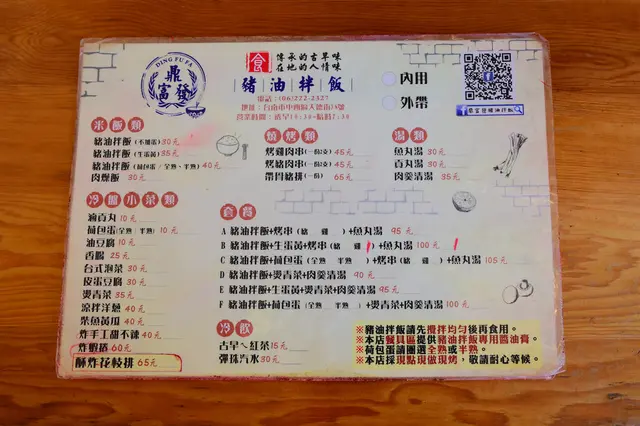 DING FU FA
鼎
富發
食 傳承的古早味
在地的人情味
豬油拌飯
電話:(06)222-2327
內用
外帶
鼎富發豬油拌飯
米飯類
豬油拌飯(不加蛋) 30元
豬油拌飯(生蛋黃) 35元
豬油拌飯(荷包蛋/全熟、半熟) 40元
肉燥飯 30元
燒烤類
烤雞肉串(一份2支) 45元
烤豬肉串(一份2支) 45元
帶骨豬排(一份) 65元
湯類
魚丸湯 30元
貢丸湯 30元
肉羹清湯 35元
冷攤小菜類
滷貢丸 10元
荷包蛋(全熟 半熟) 10元
油豆腐 10元
香腸 25元
台式泡菜 30元
皮蛋豆腐 30元
燙青菜 35元
涼拌洋蔥 40元
柴魚黃瓜 40元
炸手工甜不辣 40元
炸蝦捲 60元
酥炸花枝排 65元
套餐
A 豬油拌飯+烤串(豬 雞)+魚丸湯 95元
B 豬油拌飯+生蛋黃+烤串(豬 雞)+魚丸湯 100元
C 豬油拌飯+荷包蛋(全熟 半熟)+烤串(豬 雞)+魚丸湯 105元
D 豬油拌飯+燙青菜+肉羹清湯 90元
E 豬油拌飯+生蛋黃+燙青菜+肉羹清湯 95元
F 豬油拌飯+荷包蛋(全熟 半熟)+燙青菜+肉羹清湯 100元
冷飲
古早ㄟ紅茶 15元
彈珠汽水 30元
※豬油拌飯請先攪拌均勻後再食用。
※本店餐具區提供豬油拌飯專用醬油膏。
※荷包蛋請圈選全熟或半熟。
※本店採現點現做現烤,敬請耐心等候。